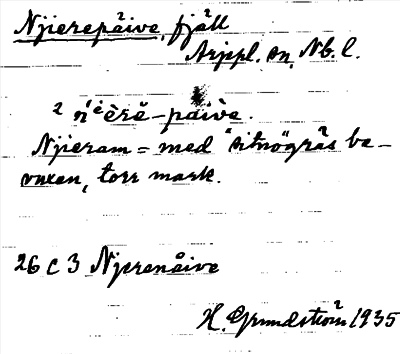 Njierepäive, fjäll
Arjepl. sn, Nb. l.
² ń'i̯èrĕ-paìvè.
Njieram = med "sitnögräs be-
vuxen, torr mark.
26 C 3 Njerenåive
H. Grundström 1935